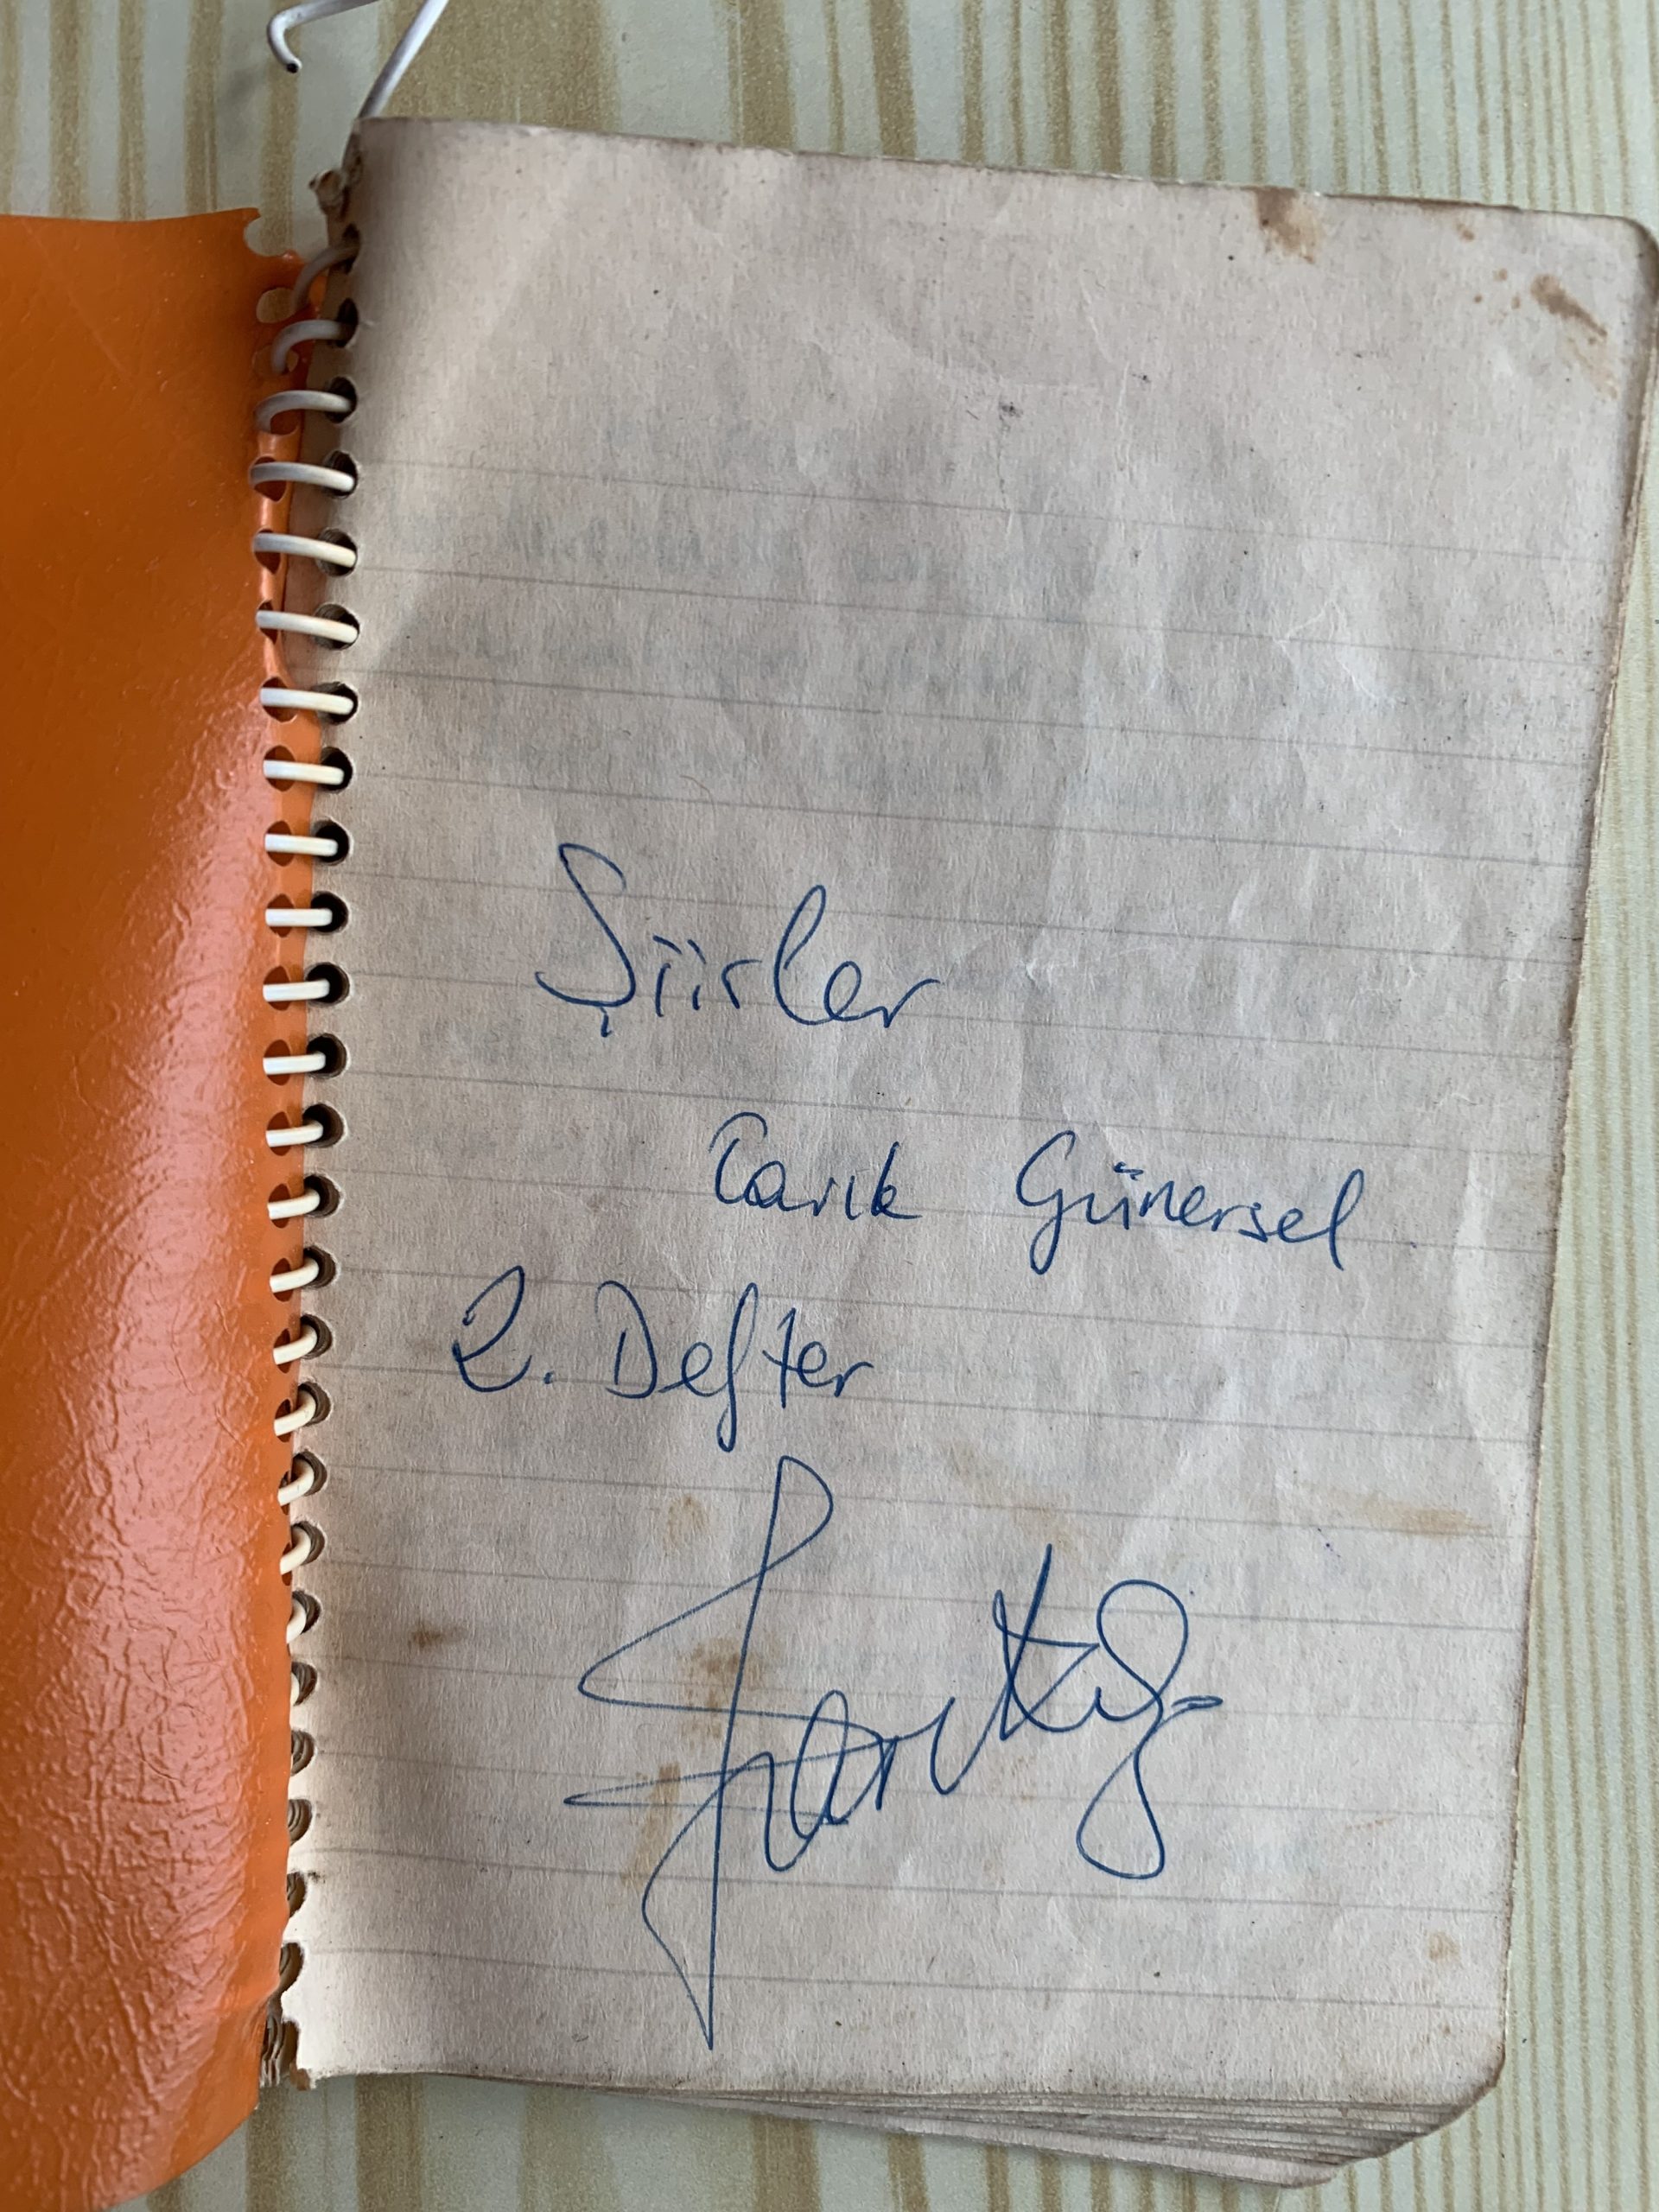 Şiirler
Tarık Günersel
2. Defter